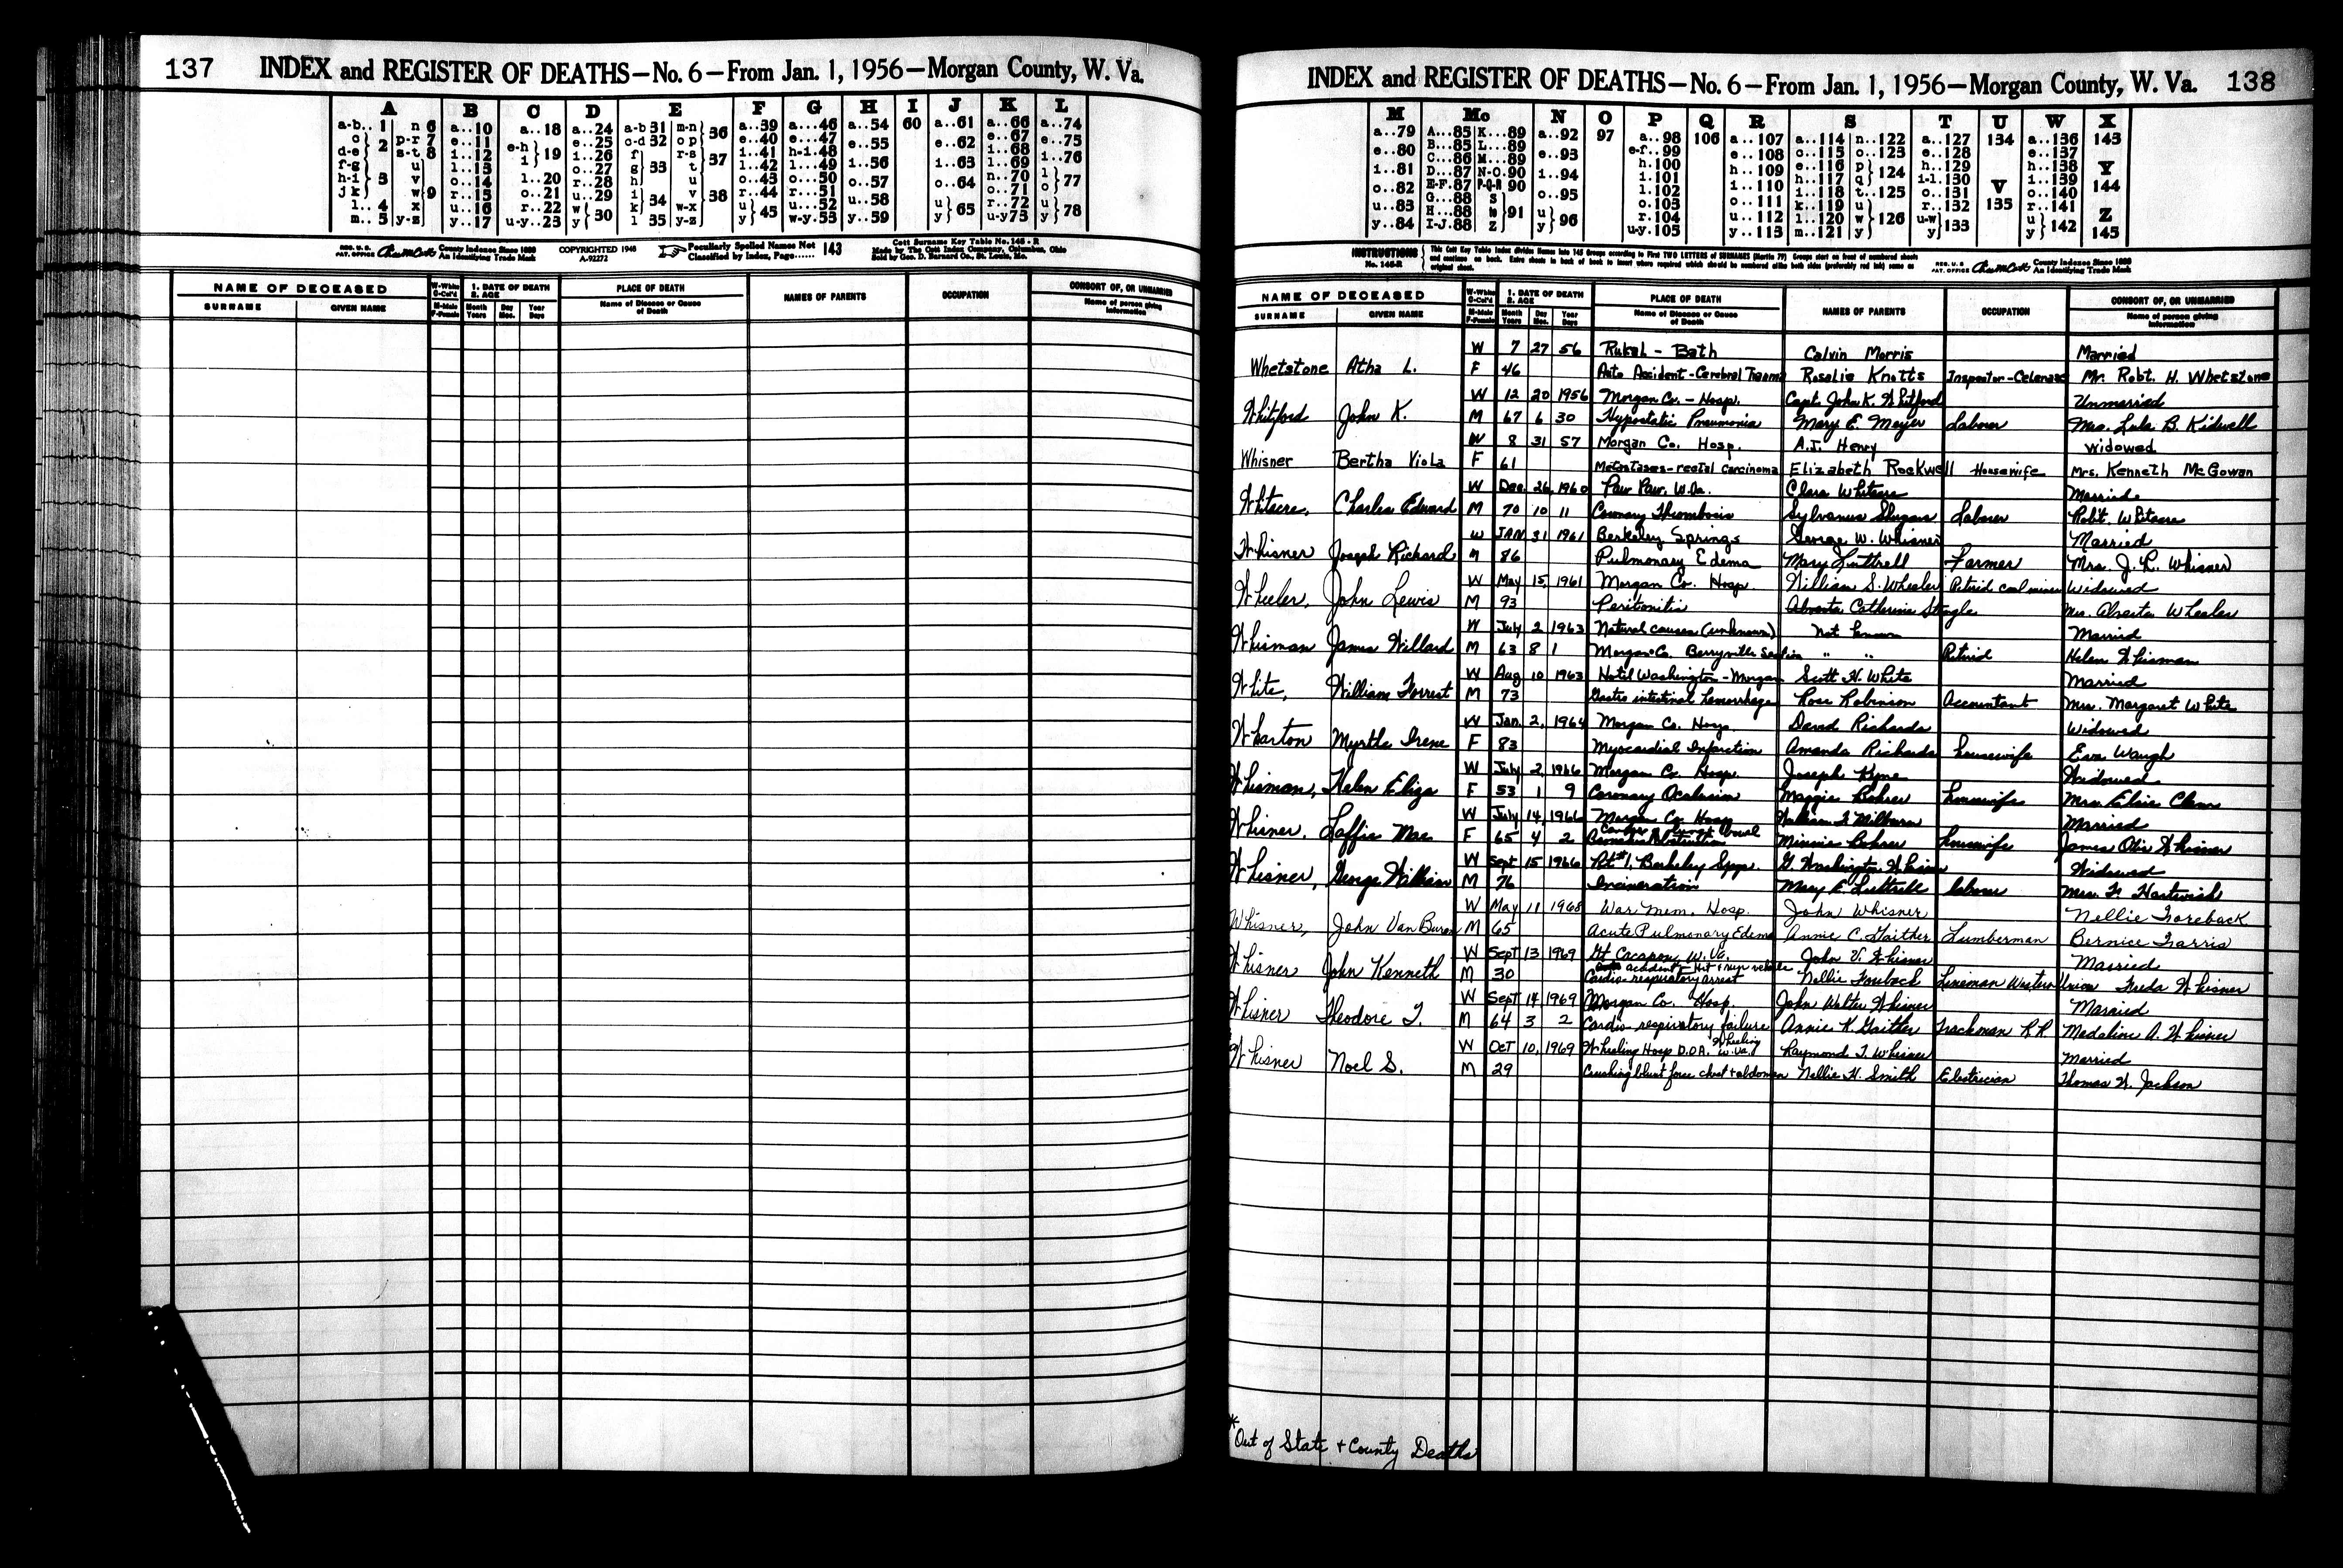 137 INDEX and REGISTER OF DEATHS—No. 6—From Jan. 1, 1956—Morgan County, W. Va.
A B C D E F G H I J K L
a-b.. 1 n 6 a...10 a..18 a..24 a-b 31 m-n a..39 a....46 a..54 60 a..61 a...66 a..74
c p-r 7 e...11 e..25 c-d 32 o p 36 e..40 e....47 e..55 e..62 e...67 e..75
d-e 2 s-t 8 i...12 e-h i...26 f r-s i...41 h-i.48 i...68 i...76
f-g u l...13 i 19 o..27 g 33 t 37 l...42 l....49 i...56 i...63 l...69 l
h-i 3 v o...14 l..20 r...28 h u o..43 o....50 o..57 o..64 n..70 o 77
j k w 9 r...15 o..21 u..29 i v r...44 r....51 u..58 o...71
l...4 x u...16 r..22 w k 34 w-x 38 u u....52 j r...72 u
m.. 5 y-z y...17 u-y..23 y 30 l 35 y-z y 45 w-y.53 y..59 y 65 u-y 73 y 78
REG. U. S. PAT. OFFICE County Indexes Since 1888 An Identifying Trade Mark COPYRIGHTED 1948 A-92272 Peculiarly Spelled Names Not Classified by Index, Page...... 143 Cott Surname Key Table No. 145-R Made by The Cott Index Company, Columbus, Ohio Sold by Geo. D. Barnard Co., St. Louis, Mo.
NAME OF DECEASED W-White C-Col'd 1. DATE OF DEATH 2. AGE PLACE OF DEATH NAMES OF PARENTS OCCUPATION CONSORT OF, OR UNMARRIED
SURNAME GIVEN NAME M-Male F-Female Month Years Day Mos. Year Days Name of Disease or Cause of Death Name of person giving information
INDEX and REGISTER OF DEATHS—No. 6—From Jan. 1, 1956—Morgan County, W. Va. 138
M Mc N O P Q R S T U W X
a..79 A...85 K...89 a..92 97 a..98 106 a..107 a..114 n..122 a..127 134 a..136 143
e..80 B...85 L...89 e-f..99 e..108 c..115 o..123 e..128 e..137
i...81 C...86 M...89 e..93 h.100 h..109 e..116 p h..129 h..138 Y
D...87 N-O.90 i...94 i.101 i...110 h..117 q 124 i-l.130 V i...139 144
o..82 E-F.87 P-Q-R 90 l.102 o..111 i...118 t..125 o..131 135 o..140
u..83 G...88 S o..95 o.103 k..119 u r..132 r..141 Z
H...88 to 91 u r.104 u..112 l..120 w 126 u-w u 145
y..84 I-J.88 Z y 96 u-y.105 y..113 m..121 y y 133 y 142
INSTRUCTIONS No. 145-R This Cott Key Table Index divides Names into 145 Groups according to First TWO LETTERS of SURNAMES Groups start on front of numbered sheets and continue on back. Extra sheets in back of book to insert where required which should be numbered alike both sides (preferably red ink) same as original sheet. REG. U. S. PAT. OFFICE County Indexes Since 1888 An Identifying Trade Mark
NAME OF DECEASED W-White C-Col'd 1. DATE OF DEATH 2. AGE PLACE OF DEATH NAMES OF PARENTS OCCUPATION CONSORT OF, OR UNMARRIED
SURNAME GIVEN NAME M-Male F-Female Month Years Day Mos. Year Days Name of Disease or Cause of Death Name of person giving information
W 7 27 56 Rural - Bath Calvin Morris Married
Whetstone Atha L. F 46 Auto Accident-Cerebral Trauma Rosalie Knotts Inspector-Celanese Mr. Robt. H. Whetstone
W 12 20 1956 Morgan Co. - Hosp. Capt. John K. Whitford Unmarried
Whitford John K. M 67 6 30 Hypostatic Pneumonia Mary E. Meyer Laborer Mrs. Lula B. Kidwell
W 8 31 57 Morgan Co. Hosp. A.J. Henry Widowed
Whisner Bertha Viola F 61 Metastases-rectal carcinoma Elizabeth Rockwell Housewife Mrs. Kenneth McGowan
W Dec. 26, 1960 Paw Paw, W.Va. Clara Whitacre Married
Whitacre, Charles Edward M 70 10 11 Coronary Thrombosis Sylvanus Laborer Robt. Whitacre
W JAN 31 1961 Berkeley Springs George W. Whisner Married
Whisner Joseph Richard M 86 Pulmonary Edema Mary Luttrell Farmer Mrs. J. R. Whisner
W May 15, 1961 Morgan Co. Hosp. William S. Wheeler Retired coal miner Widowed
Wheeler, John Lewis M 93 Peritonitis Catherine Mrs. Alverta Wheeler
W July 2 1963 Natural causes (unknown) Not known Married
Whisman James Willard M 63 8 1 Morgan Co. Berryville Section " " Retired Helen Whisman
W Aug 10 1963 Hotel Washington - Morgan Scott H. White Married
White, William Forrest M 73 Gastro intestinal hemorrhage Rose Robinson Accountant Mrs. Margaret White
W Jan. 2, 1964 Morgan Co. Hosp. David Richards Widowed
Wharton Myrtle Irene F 83 Myocardial Infarction Amanda Richards housewife Eva Waugh
W July 2, 1966 Morgan Co. Hosp. Joseph Kyne Widowed
Whisman, Helen Eliza F 53 1 9 Coronary Occlusion Maggie Bohrer housewife Mrs. Elsie
W July 14, 1966 Morgan Co. Hosp William Milburn Married
Whisner, Laffie Mae F 65 4 2 Obstruction Minnie Bohrer housewife James Otis Whisner
W Sept 15 1966 Rt #1, Berkeley Spgs. G. Washington Whisner Widowed
Whisner, George William M 76 Incineration Mary E. Luttrell laborer Mrs. Hartwick
W May 11 1968 War Mem. Hosp. John Whisner Nellie Foreback
Whisner, John Van Buren M 65 Acute Pulmonary Edema Annie C. Gaither Lumberman Bernice Farris
W Sept 13 1969 Gt Cacapon, W. Va. John V. Whisner Married
Whisner John Kenneth M 30 accident - Hit & run vehicle Cardio-respiratory arrest Nellie Foreback Lineman Western Union Freda Whisner
W Sept 14 1969 Morgan Co. Hosp. John Walter Whisner Married
Whisner Theodore T. M 64 3 2 Cardio-respiratory failure Annie K. Gaither Trackman R.R. Madaline A. Whisner
W Oct 10, 1969 Wheeling Hosp D.O.A. Wheeling W. Va. Raymond T. Whisner Married
*Whisner Noel S. M 29 Crushing blunt force chest & abdomen Nellie H. Smith Electrician Thomas H. Jackson
*Out of State & County Deaths